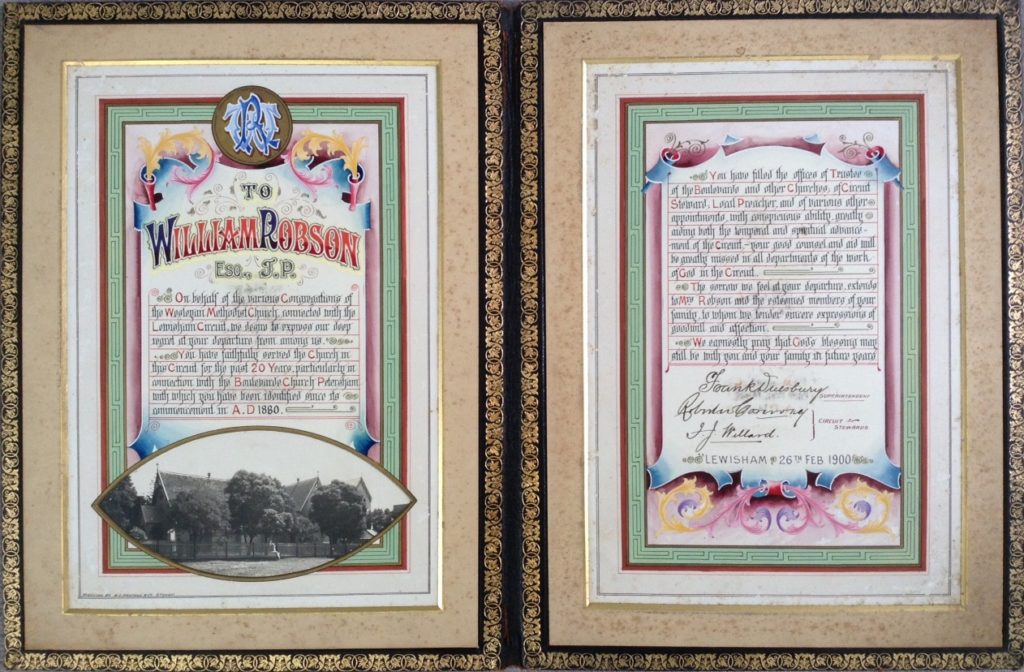 WR
TO
WILLIAM ROBSON
ESQ., J.P.
On behalf of the various Congregations of
the Wesleyan Methodist Church, connected with the
Lewisham Circuit, we desire to express our deep
regret at your departure from among us.
You have faithfully served the Church in
this Circuit for the past 20 Years, particularly in
connection with the Boulevarde Church Petersham
with which you have been identified since its
commencement in A.D 1880.
You have filled the offices of Trustee
of the Boulevarde and other Churches, of Circuit
Steward, Local Preacher, and of various other
appointments, with conspicuous ability, greatly
aiding both the temporal and spiritual advance-
ment of the Circuit - your good counsel and aid will
be greatly missed in all departments of the work
of God in the Circuit.
The sorrow we feel at your departure, extends
to Mrs Robson and the esteemed members of your
family, to whom we tender sincere expressions of
goodwill and affection.
We earnestly pray that God's blessing may
still be with you and your family in future years
Frank Duesbury
SUPERINTENDENT
CIRCUIT
STEWARDS
J. J. Willard.
LEWISHAM 26TH FEB 1900